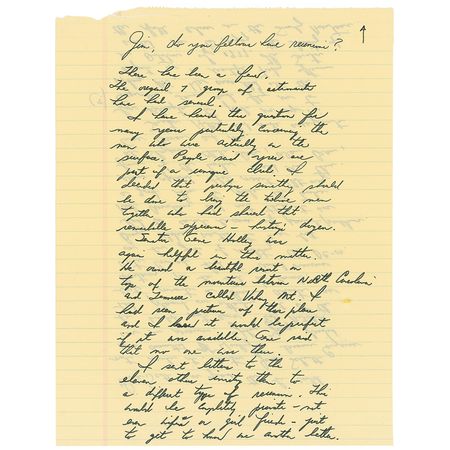 Jim, do you fellows have reunions?
There have been a few.
The original 7 group of astronauts
have had several.
I have heard the question for
many years particularly concerning the
men who were actually on the
surface. People said you are
part of a unique club. I
decided that perhaps something should
be done to bring the twelve men
together who had shared that
remarkable experience - history's dozen.
Senator Gene Hatley was
again helpful in this matter.
He owned a beautiful resort on
top of the mountains between North Carolina
and Tennessee called Mt. I
had seen pictures of this place
and I knew it would be perfect
if it was available. Gene said
that no one was there.
I sent letters to the
eleven others inviting them to
a different type of reunion. This
would be completely private - not
even wifes or girl friends - just
to get to know one another better.